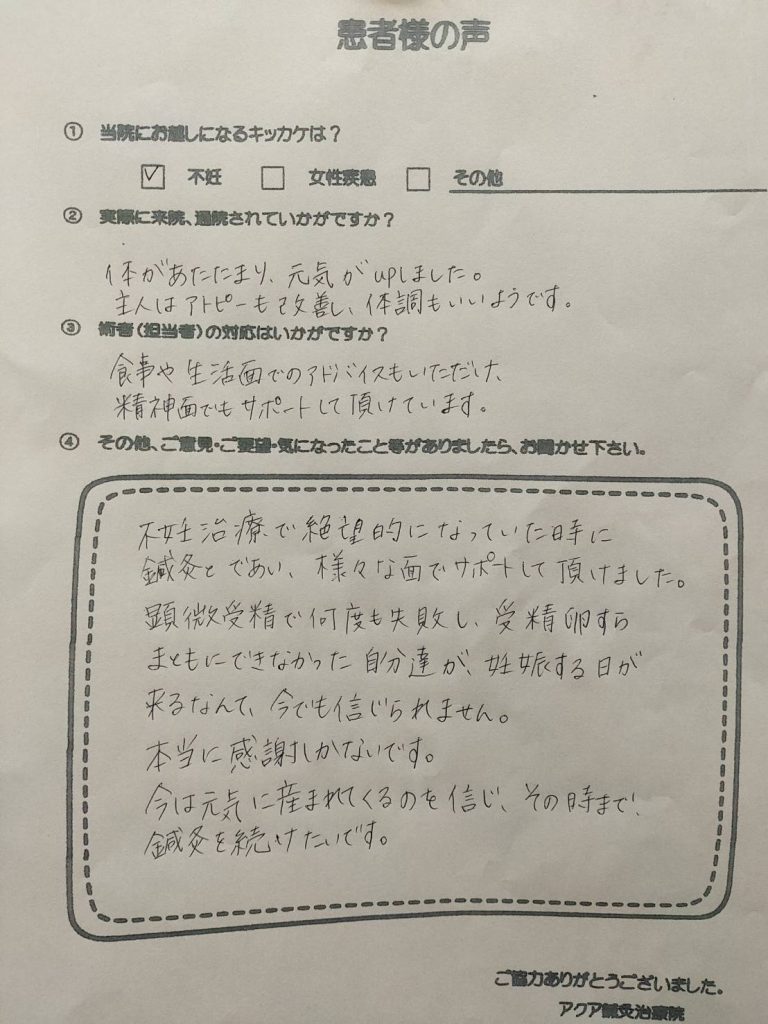 患者様の声
① 当院にお越しになるキッカケは？
☑ 不妊 □ 女性疾患 □ その他
② 実際に来院、通院されていかがですか？
体があたたまり、元気がupしました。
主人はアトピーも改善し、体調もいいようです。
③ 術者（担当者）の対応はいかがですか？
食事や生活面でのアドバイスもいただけ、
精神面でもサポートして頂けています。
④ その他、ご意見・ご要望・気になったこと等がありましたら、お聞かせ下さい。
不妊治療で絶望的になっていた時に
鍼灸とであい、様々な面でサポートして頂けました。
顕微受精で何度も失敗し、受精卵すら
まともにできなかった自分達が、妊娠する日が
来るなんて、今でも信じられません。
本当に感謝しかないです。
今は元気に産まれてくるのを信じ、その時まで、
鍼灸を続けたいです。
ご協力ありがとうございました。
アクア鍼灸治療院